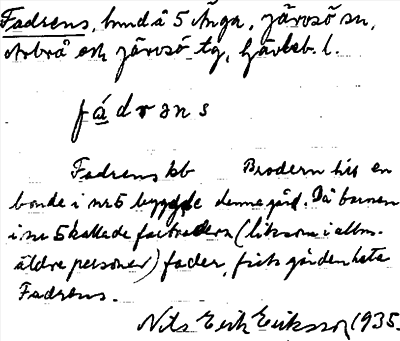 Fadrens, bund å 5 Änga, Järvsö sn,
Arbrå och Järvsö tg, Gävleb. l.
fádrəns
Fadrens kb Brodern till en
bonde i nr 5 byggde denna gård. Då barnen
i nr 5 kallade farbrodern (liksom i allm.
äldre personer) fader, fick gården heta
Fadrens.
Nils Erik Eriksson 1935.